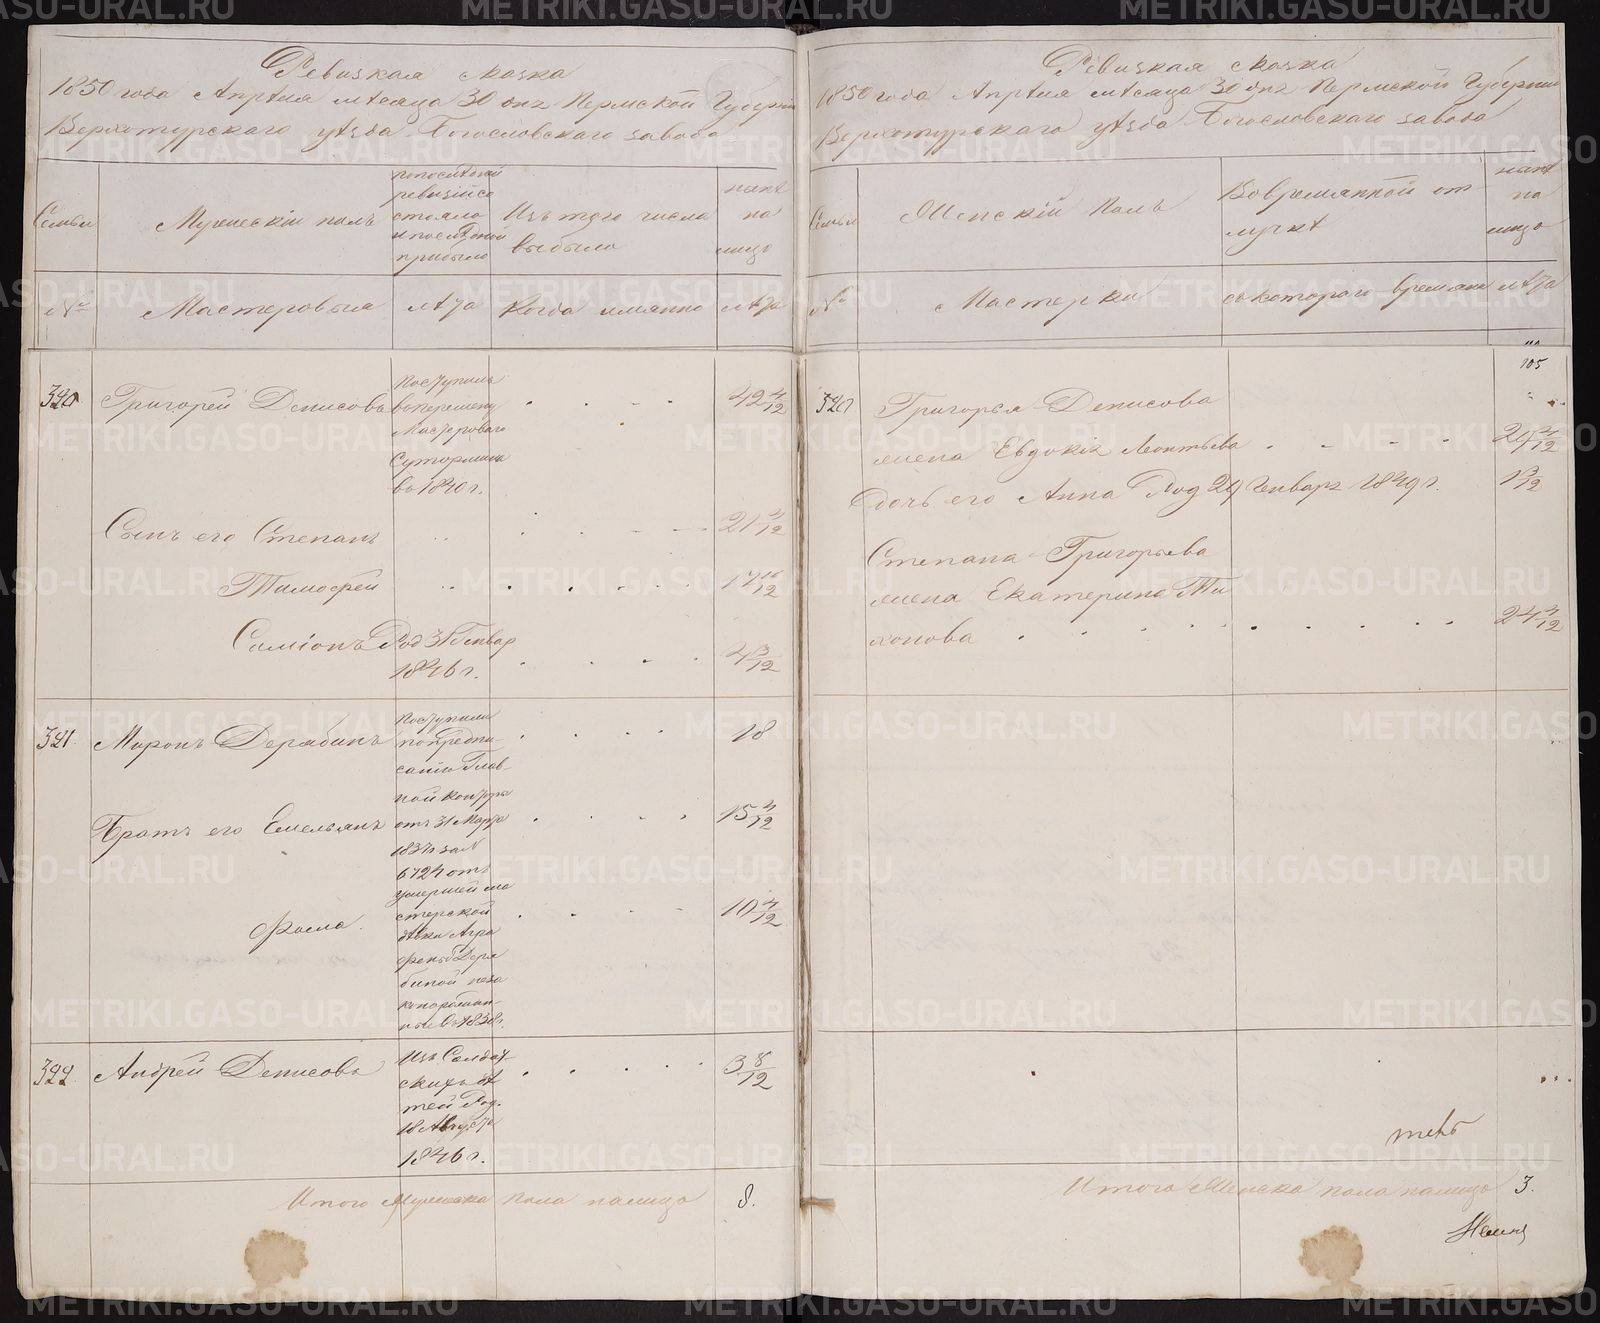 Ревизкая сказка
1850 года Апрѣля мѣсяца 30 дня Пермской Губерніи
Верхотурскаго уѣзда Богословскаго завода
Семьи
Мужескій полъ
по послѣдней
ревизіи со
стояло
и послѣ оной
прибыло
Изъ того числа
выбыло
нынѣ
на
лицо
№
Мастеровыя
лѣта
Когда имянно
лѣта
340
Григорей Денисовъ
Поступилъ
Мастероваго
во 1840 г.
42 4/12
Сынъ его Степанъ
21 4/12
Тимофей
Семіонъ
Род 31 Генвар
1846 г.
4 3/12
341.
Миронъ Дерябинъ
Поступили
по предпи
санію Глав-
ной Конторы
отъ 31 Марта
18
Братъ его Емельянъ
15 4/12
6724 отъ
умершей ма
стерской
дѣвки Агра
фены Деря
биной неза
Фома.
10 4/12
342.
Андрей Денисовъ
Изъ Солдат-
скихъ дѣ
тей Род.
18 Августа
1846 г.
3 8/12
Итого Мужеска пола налицо 8.
Ревизкая сказка
1850 года Апрѣля мѣсяца 30 дня Пермской Губерніи
Верхотурскаго уѣзда Богословскаго завода
Семьи
Женскій Полъ
Во времянной от
лучкѣ
нынѣ
на
лицо
№
Мастерки
съ котораго времяни
лѣта
105
340
Григорья Денисова
жена Евдокія Леонтьева
Дочь его Анна Род 29 Генваря 1849 г.
1 3/12
Степана Григорьева
жена Екатерина Ти
хонова
24 4/12
Итого Женска пола налицо 3.
METRIKI.GASO-URAL.RU